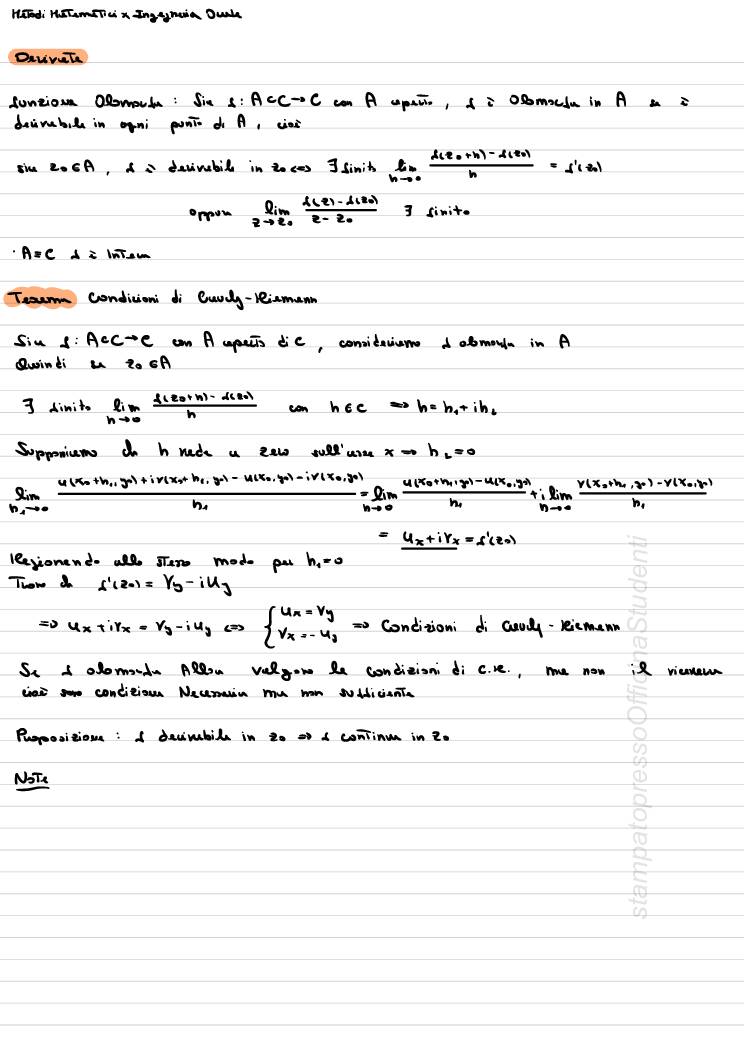 Metodi Matematici x Ingegneria Orale
Derivate
funzione Olomorfa : Sia f : A⊂C→C con A aperto , f è Olomorfa in A se è
derivabile in ogni punto di A , cioè
sia z₀∈A , f è derivabile in z₀ <=> ∃ finito lim h→0 (f(z₀+h) - f(z₀))/h = f'(z₀)
oppure lim z→z₀ (f(z) - f(z₀))/(z - z₀) ∃ finito
· A≡C f è Intera
Teorema Condizioni di Cauchy-Riemann
Sia f : A⊂C→C con A aperto di C , consideriamo f olomorfa in A
Quindi se z₀∈A
∃ finito lim h→0 (f(z₀+h) - f(z₀))/h con h∈C => h = h₁+ih₂
Supponiamo che h vada a zero sull'asse x => h₂=0
lim h₁→0 (u(x₀+h₁,y₀)+iv(x₀+h₁,y₀) - u(x₀,y₀) - iv(x₀,y₀))/h₁ = lim h→0 (u(x₀+h₁,y₀) - u(x₀,y₀))/h₁ + i lim h→0 (v(x₀+h₁,y₀) - v(x₀,y₀))/h₁
= uₓ+ivₓ = f'(z₀)
Ragionando allo stesso modo per h₁=0
Trovo che f'(z₀) = Vy - iUy
=> Ux + iVx = Vy - iUy <=> { Ux = Vy Vx = -Uy => Condizioni di Cauchy-Riemann
Se f olomorfa Allora valgono le condizioni di C.R. , ma non il viceversa
cioè sono condizione Necessaria ma non sufficiente
Proposizione : f derivabile in z₀ => f continua in z₀
Note
stampatopressoOfficinaStudenti